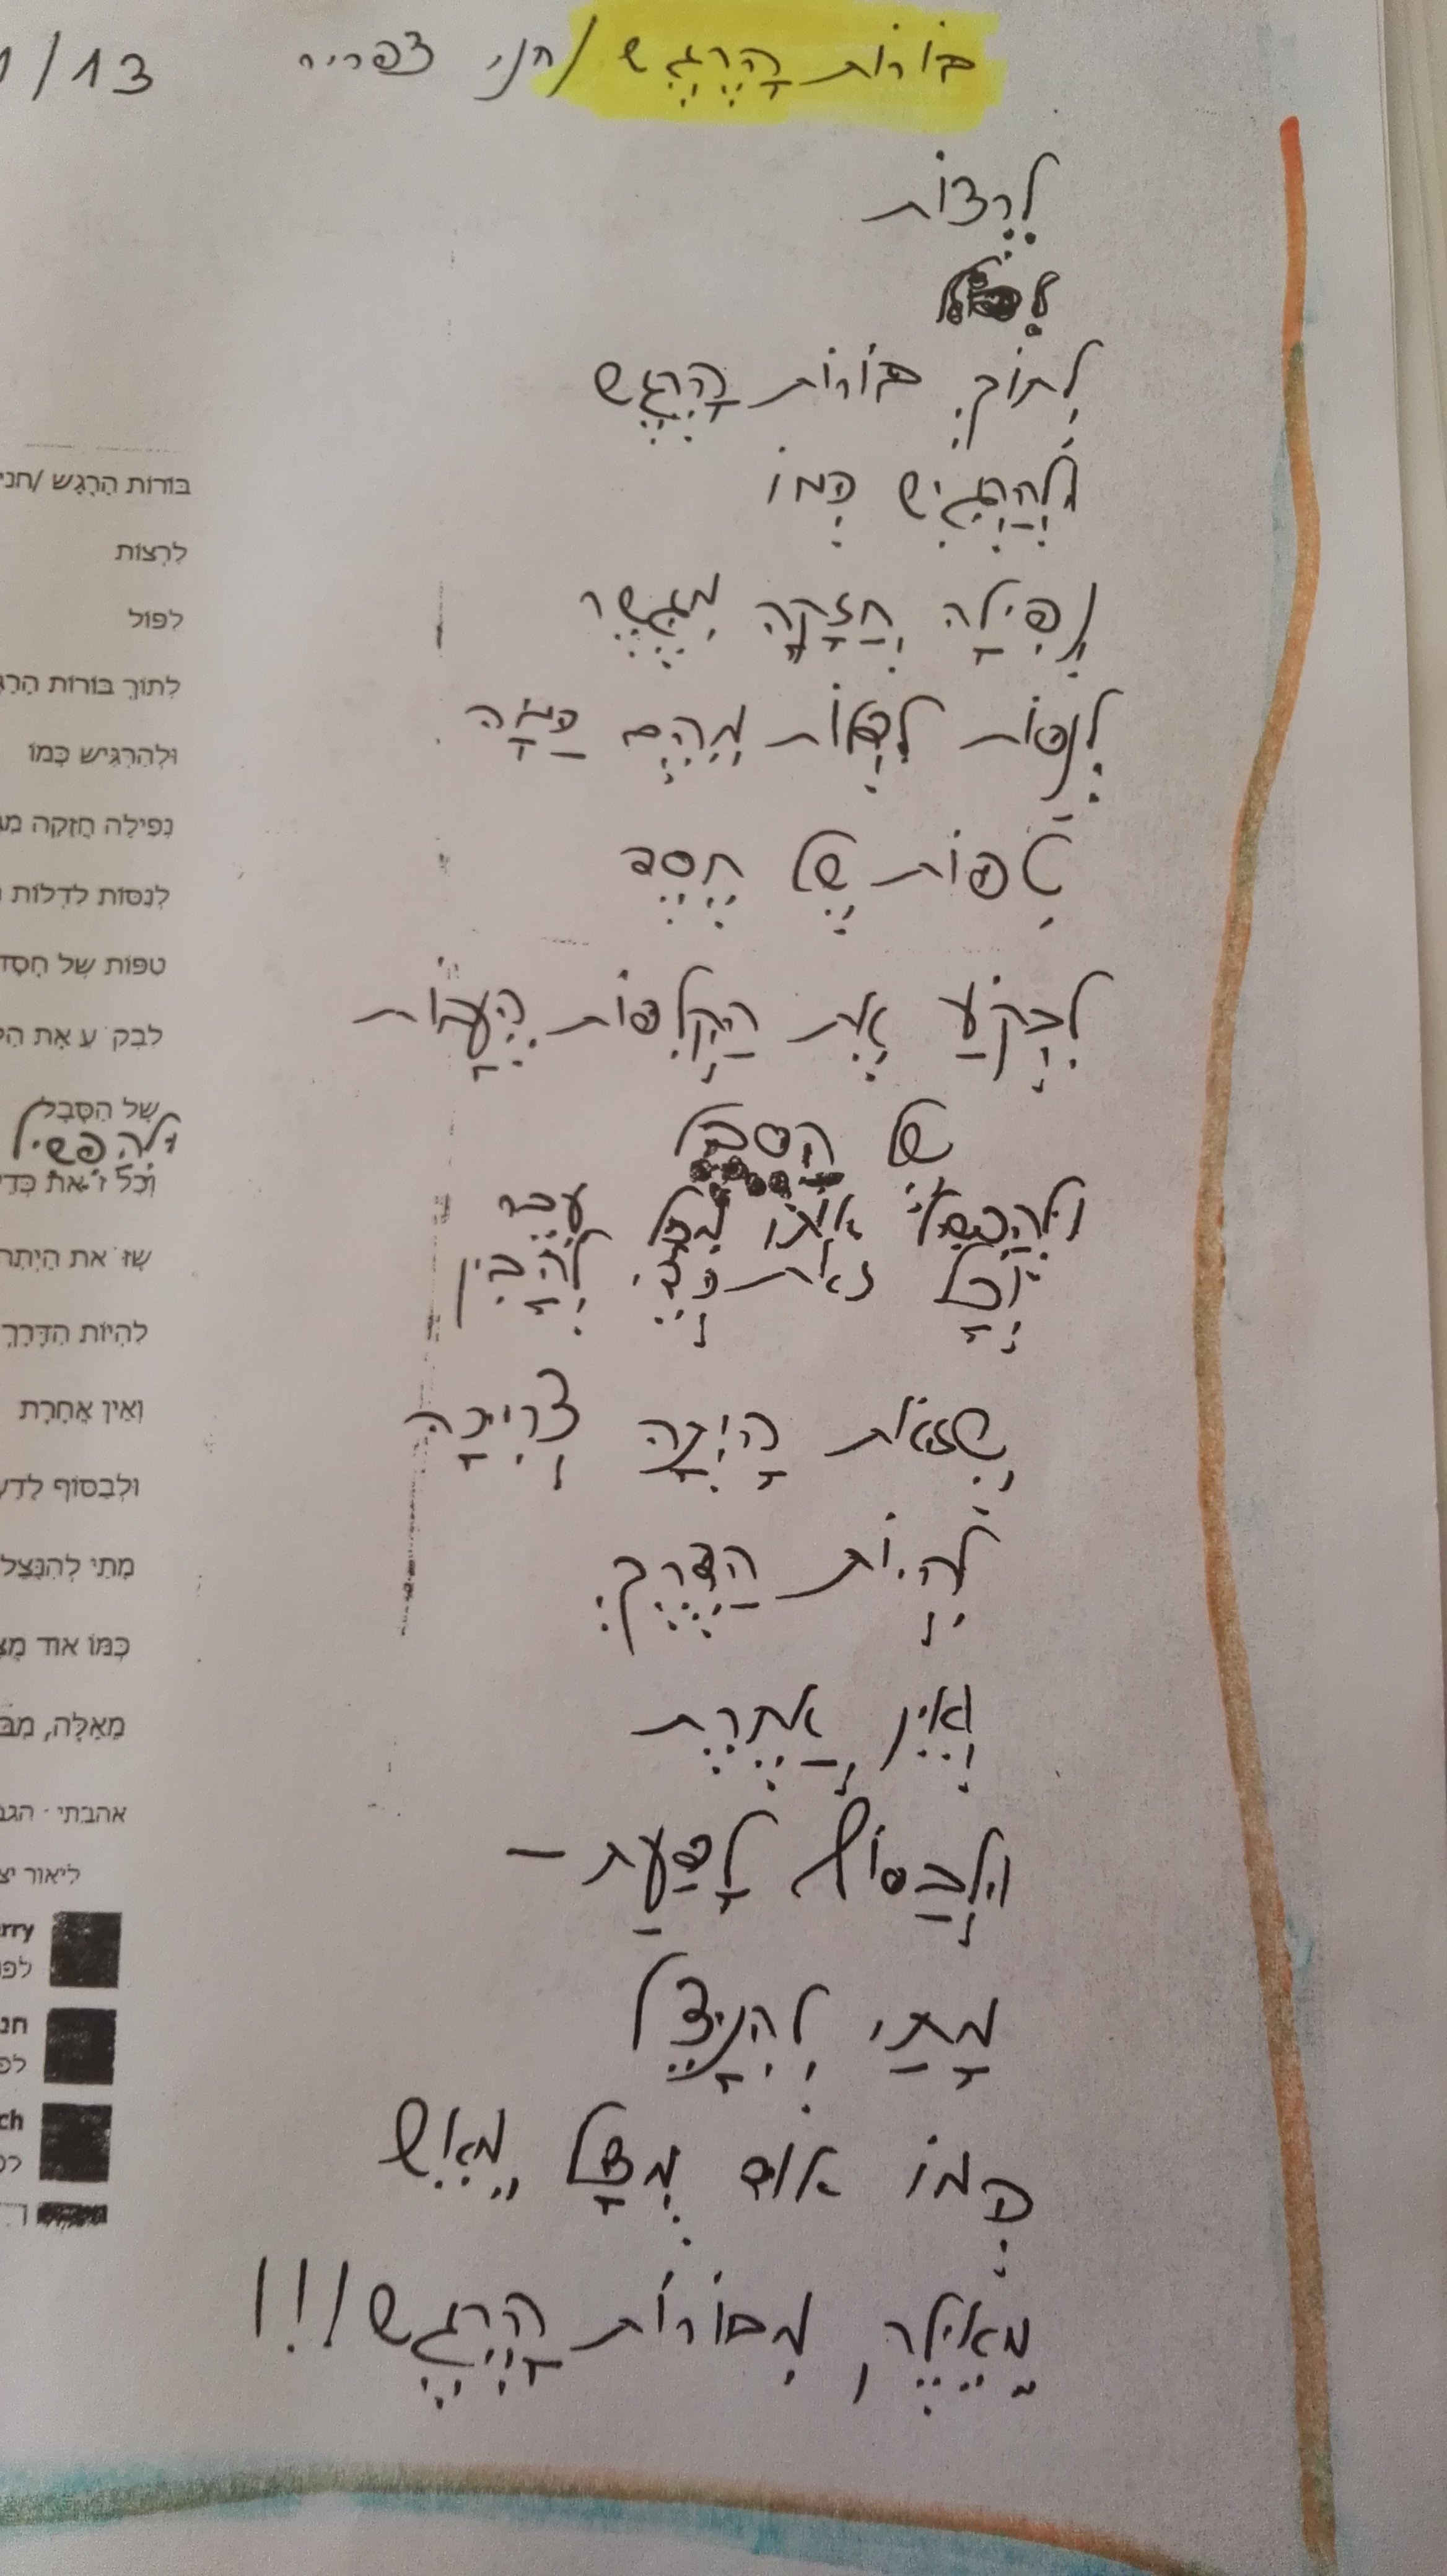 בּוֹרוֹת הָרֶגֶשׁ / חני צפריר 1/13
לִרְצוֹת
לְתוֹךְ בּוֹרוֹת הָרֶגֶשׁ
וּלְהַרְגִּישׁ כְּמוֹ
נְפִילָה חֲזָקָה מִגֶּשֶׁר
לְנַסּוֹת לִדְלוֹת מֵהֶם כַּמָּה
טִפּוֹת שֶׁל חֶסֶד
לִבְקֹעַ אֶת הַקְּלִפּוֹת הֶעָבוֹת
שֶׁל הַסֵּבֶל
אוֹתוֹ מִכָּל עֵבֶר
וְכָל זֹאת כְּדֵי לְהָבִין
שֶׁזֹּאת הָיְתָה צְרִיכָה
לִהְיוֹת הַדֶּרֶךְ
וְאֵין אַחֶרֶת
וּלְבַסּוֹף לָדַעַת –
מָתַי לְהִנָּצֵל
כְּמוֹ אוּד מֻצָּל מֵאֵשׁ
מֵאֵילֶּה, מִבּוֹרוֹת הָרֶגֶשׁ!!!
בּוֹרוֹת הָרֶגֶשׁ /חני
לִרְצוֹת
לִפּוֹל
לְתוֹךְ בּוֹרוֹת
וּלְהַרְגִּישׁ כְּמוֹ
נְפִילָה חֲזָקָה
לְנַסּוֹת לִדְלוֹת
טִפּוֹת שֶׁל חֶסֶד
לִבְקֹעַ אֶת
שֶׁל הַסֵּבֶל
וּלְהַפְשִׁיל
וְכָל זֹאת כְּדֵי
שֶׁזֹּאת
לִהְיוֹת הַדֶּרֶךְ
וְאֵין אַחֶרֶת
וּלְבַסּוֹף
מָתַי לְהִנָּצֵל
כְּמוֹ אוּד
אהבתי · הגב
ליאור